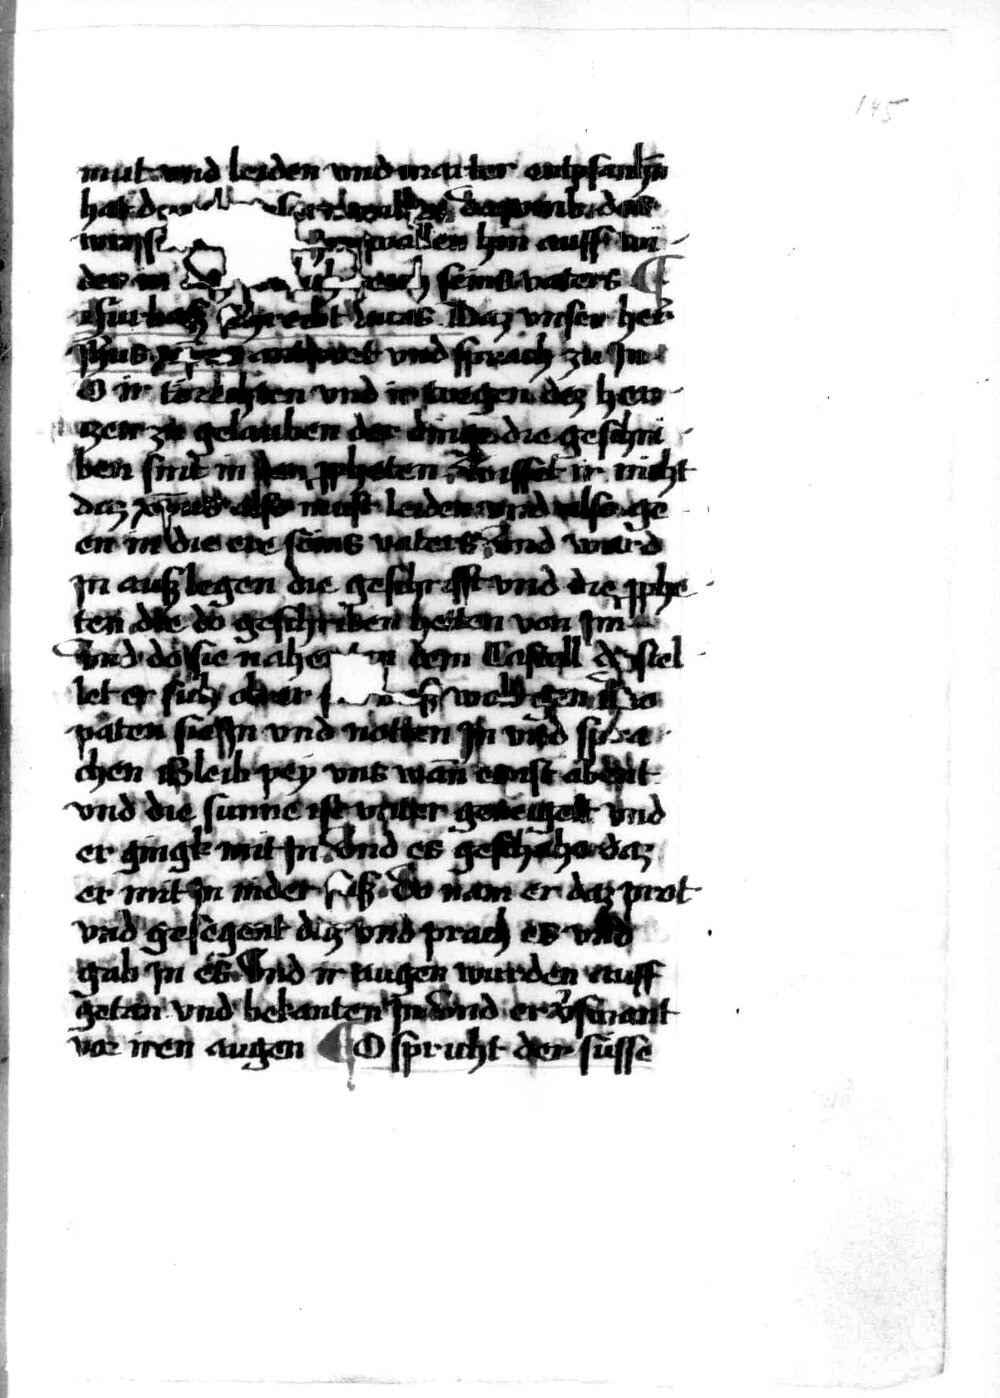 145
mut und leiden vnd marter entpfanhen
hat
hin auff wi
der in seins vaters
Furbaß schreibt lucas Daz vnser her
Jhus antwort vnd sprach zu Jn
O ir torechten vnd ir tregen dez hert
zen zu gelauben der dinge die geschri
ben sint in den ppheten Wisset ir nicht
daz xpus also must leiden vnd also ge
en in die ere seins vaters Vnd ward
Jn außlegen die geschrifft vnd die pphe
ten die do geschriben heten von Jm
Vnd do sie nahen dem Castell do stel
let er sich aber gen Do
paten sie Jn vnd notten Jn vnd spra
chen Bleib pey vns wann es ist abent
vnd die sunne ist vnter geneiget vnd
er gingk mit Jn Vnd es geschahe daz
er mit Jn nider saß Do nam er daz prot
vnd gesegent diz vnd prach es vnd
gab Jn es Vnd ir augen wurden auff
getan vnd bekanten Jn Vnd er v'swant
vor iren augen O spricht der süsse